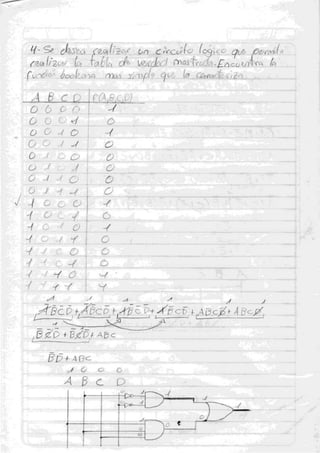 4.- Se desea realizar un circuito lógico que permita
realizar la tabla de verdad mostrada. Encuentra la
función booleana mas simple que la caracteriza.
A B C D F(A,B,C,D)
0 0 0 0 1
0 0 0 1 0
0 0 1 0 1
0 0 1 1 0
0 1 0 0 0
0 1 0 1 0
0 1 1 0 0
0 1 1 1 0
1 0 0 0 1
1 0 0 1 0
1 0 1 0 1
1 0 1 1 0
1 1 0 0 0
1 1 0 1 0
1 1 1 0 1
1 1 1 1 1
A̅B̅C̅D̅ + A̅B̅CD̅ + AB̅C̅D̅ + AB̅CD̅ + ABCD̅ + ABCD
B̅C̅D̅ + B̅CD̅ + ABC
B̅D̅ + ABC
1 0 0 0
A B C D